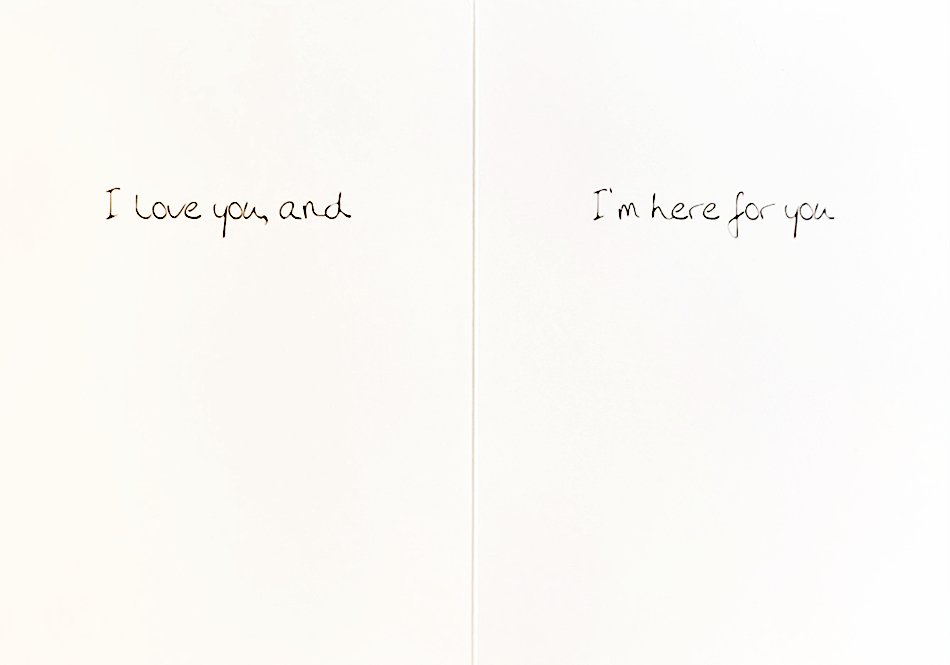 I love you, and
I'm here for you